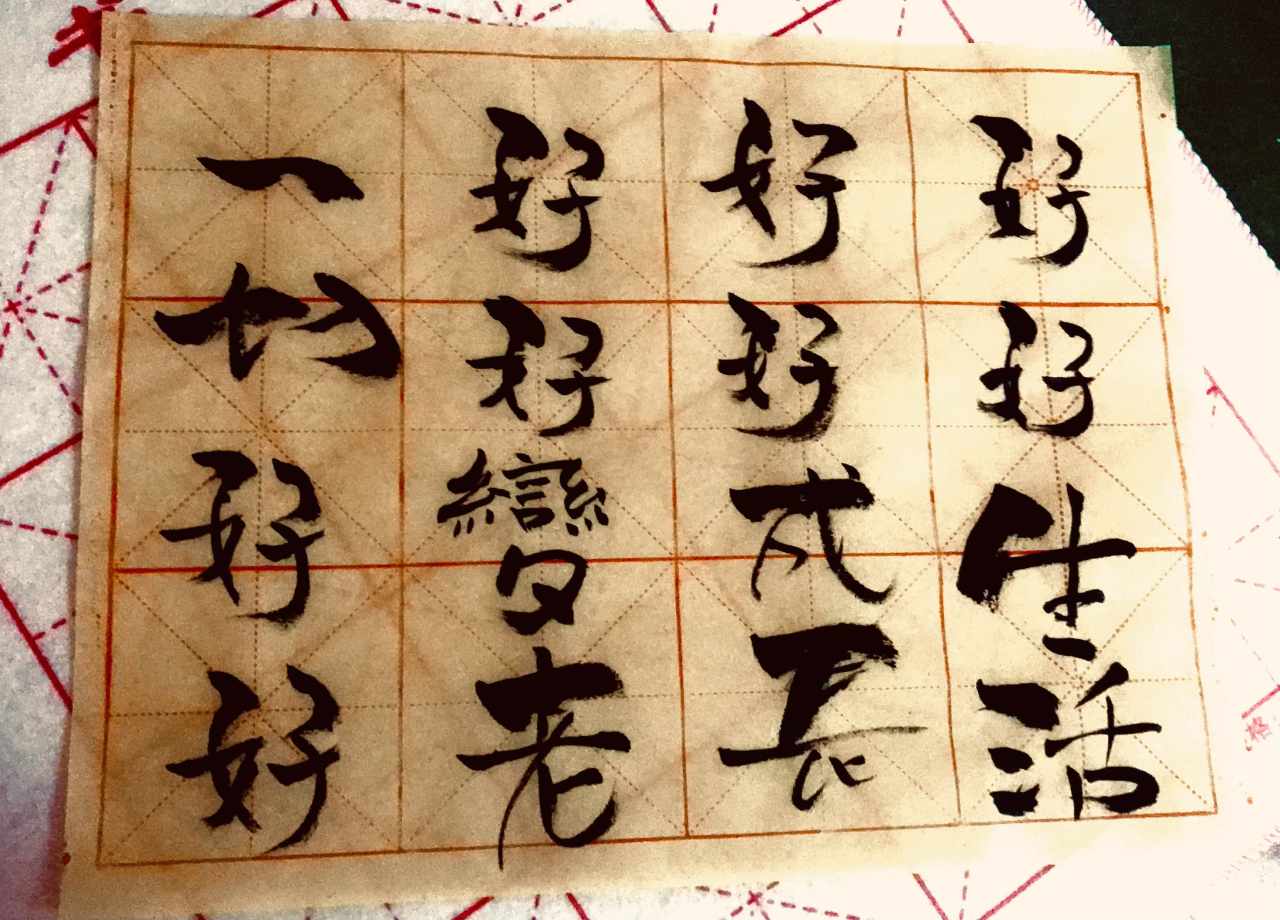 好好生活
好好成長
好好變老
一切好好